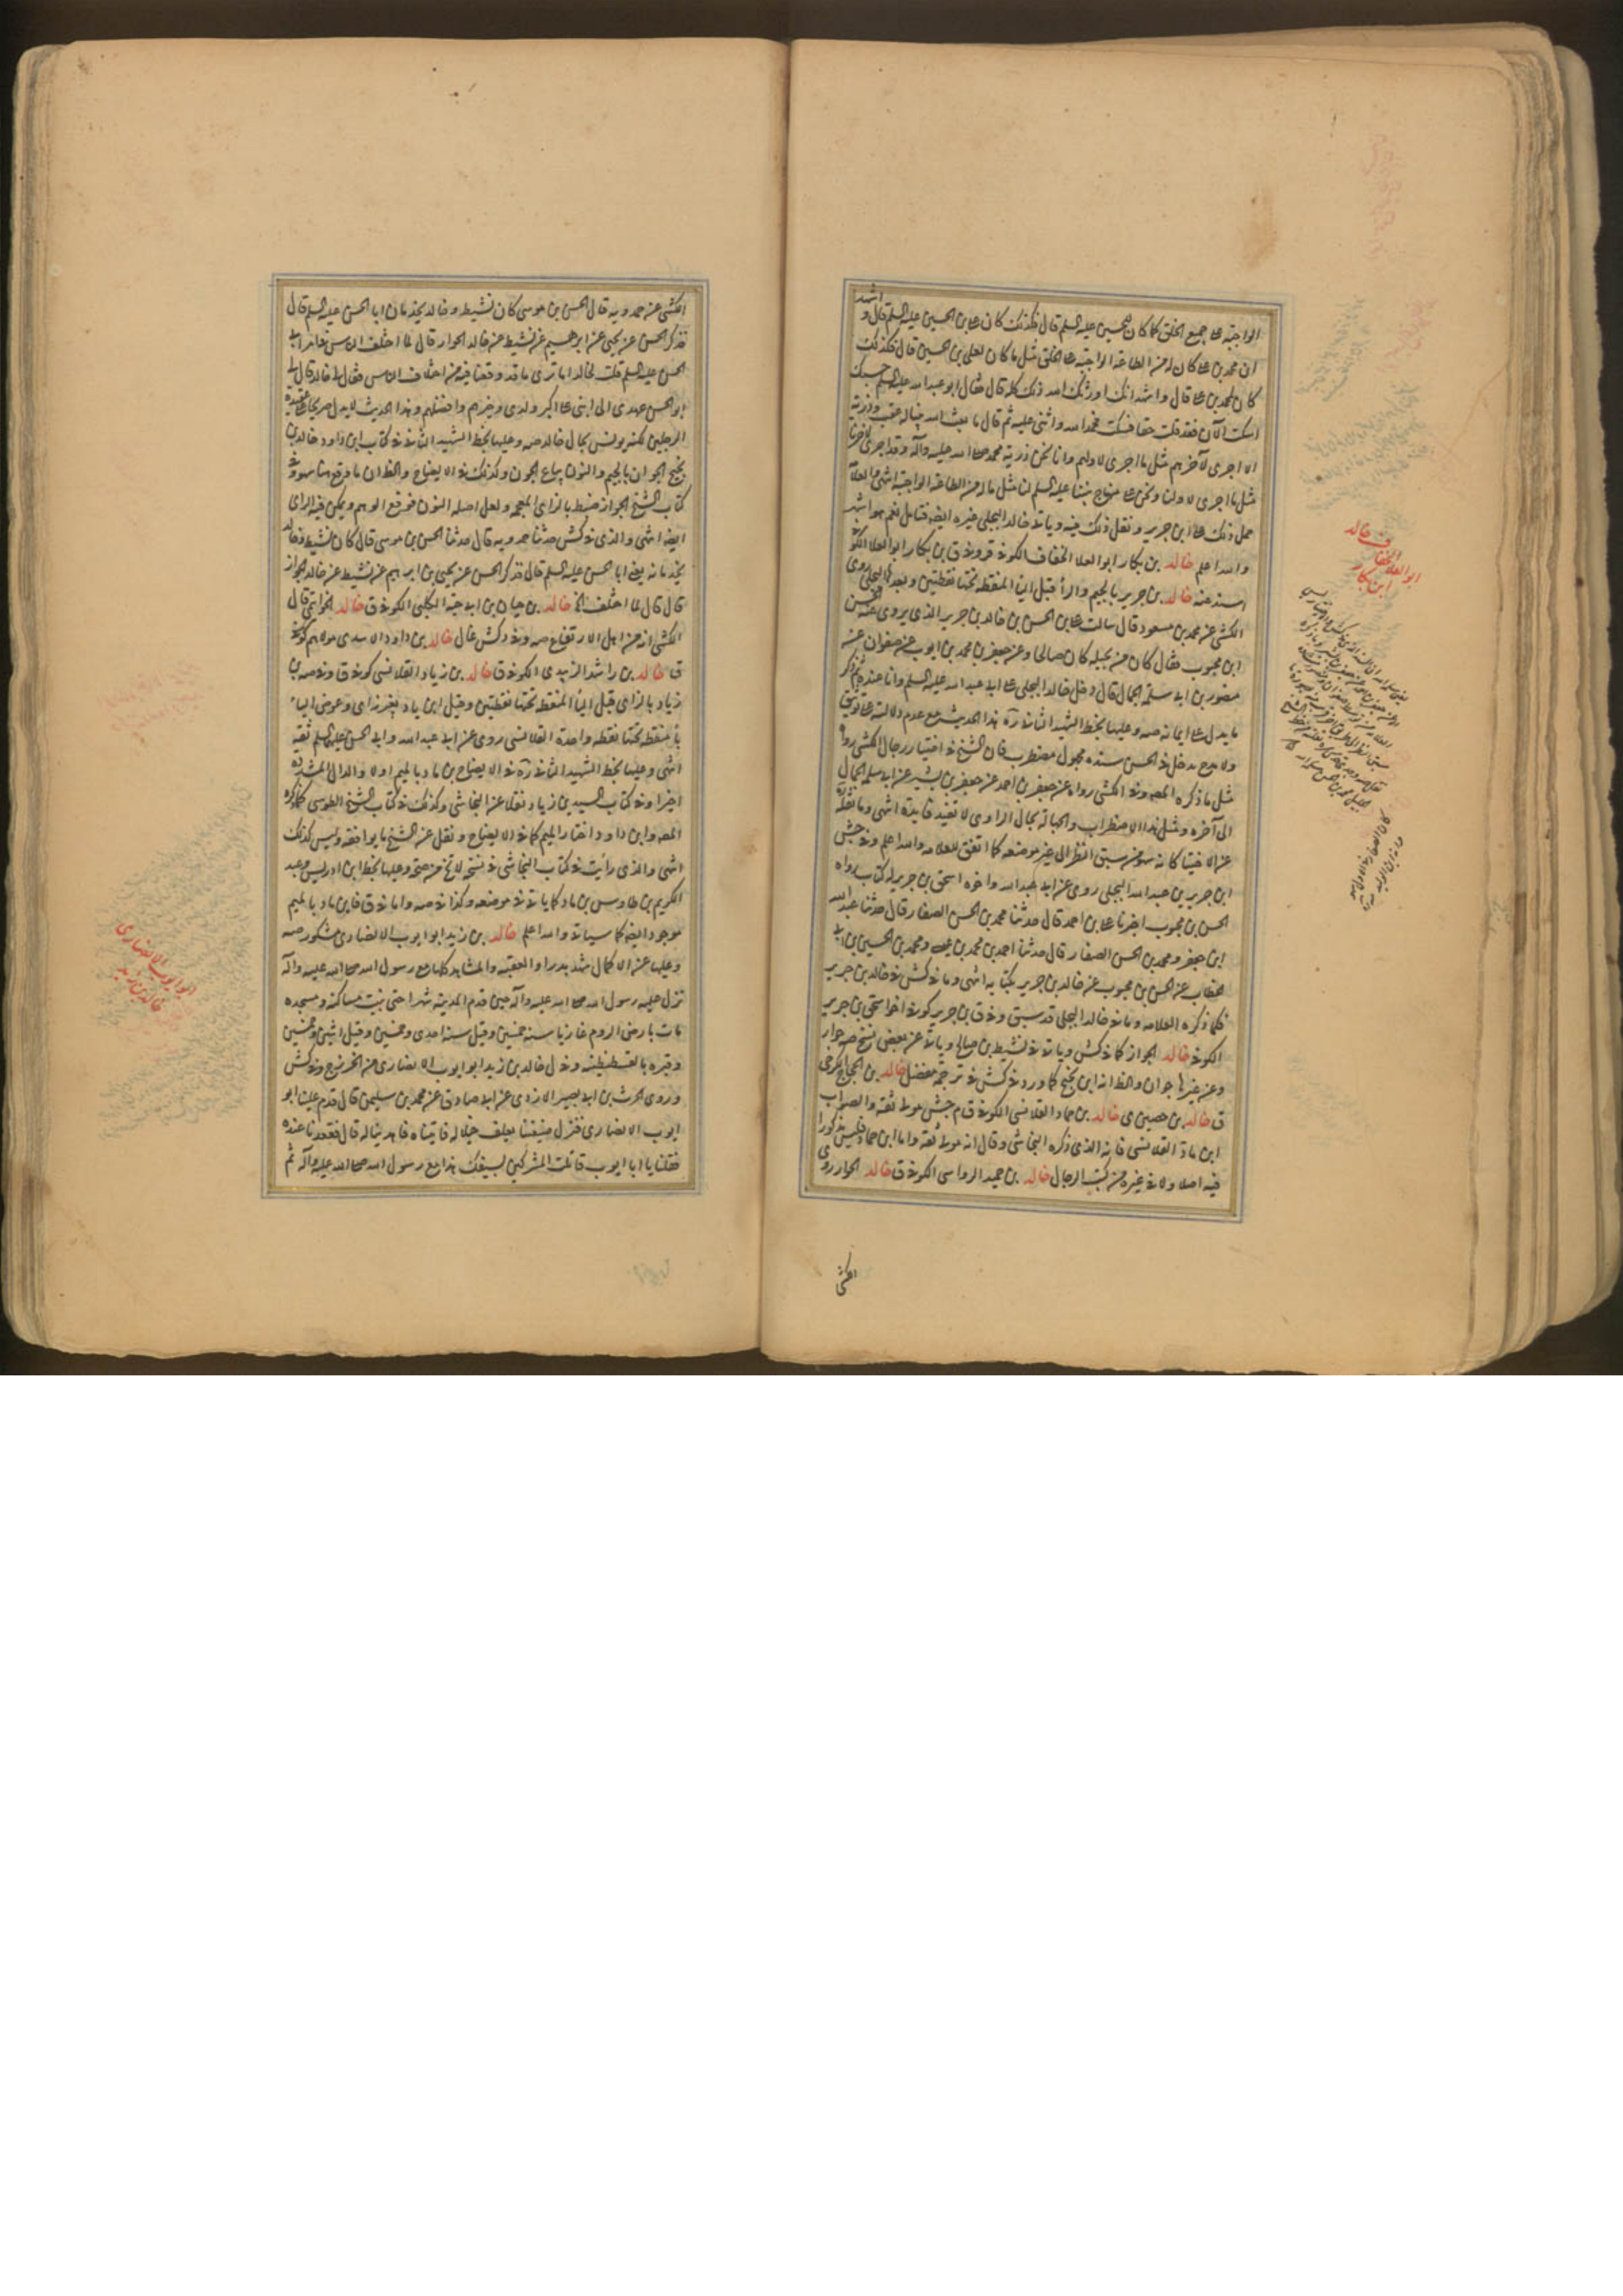 اشهد
الواجبة على جميع الخلق كما كان للحسين عليه السلم قال فكذلك كان على بن الحسين عليه السلم قال و
ان محمد بن على كان له من الطاعة الواجبة على الخلق مثل ما كان لعلى بن الحسين قال فكذلك
كان محمد بن على قال واشهد انك اورثك الله ذلك كله قال فقال ابو عبد الله عليه السلم حسبك
اسكت الآن فقد قلت حقا فسكت فحمد الله واثنى عليه ثم قال ما بعث الله نبيا له عقب وذرية
الا اجرى لآخرهم مثل ما اجرى لاولهم وانا نحن ذرية محمد صلى الله عليه وآله وقد اجرى لآخرنا
مثل ما اجرى لاولنا ونحن على منهاج نبينا عليه السلم لنا مثل ما له من الطاعة الواجبة انتهى والعلامة
حمل ذلك على ابن جرير ونقل ذلك فيه وياتى خالد البجلى غيره ايضا فتامل نعم هو اشهر
والله اعلم خالد بن بكار ابو العلا الخفاف الكوفى قر وفى ق بن بكار ابو العلا الكوفى
اسند عنه خالد بن جرير بالجيم والرا قبل اليا المنقطة تحتها نقطتين وبعدها البجلى روى
الكشى عن محمد بن مسعود قال سالت على بن الحسن عن خالد بن جرير الذى يروى عنه الحسن
ابن محبوب فقال كان من بجيله كان صالحا وعن جعفر بن محمد بن ايوب عن صفوان عن
منصور بن ابى سلمة الجمال قال دخل خالد البجلى على ابى عبد الله عليه السلم وانا عنده ثم ذكر
ما يدل على ايمانه صه وعليها بخط الشهيد الثانى ره هذا الحديث مع عدم دلالته على توثيق
ولا مدح يدخل فى الحسن سنده مجهول مضطرب فان الشيخ فى اختيار رجال الكشى رواه
مثل ما ذكره المصه وفى الكشى رواه عن جعفر بن احمد عن جعفر بن بشير عن ابى سلمة الجمال
الى آخره ومثل هذا الاضطراب والجهالة بحال الراوى لا تفيد فايدة انتهى وما نقله
عن الاختيار كانه سهو من سبق النظر الى غير موضعه كما اتفق للعلامه والله اعلم وفى جش
ابن جرير بن عبد الله البجلى روى عن ابى عبد الله واخوه اسحق بن جرير له كتاب رواه
الحسن بن محبوب اخبرنا على بن احمد قال حدثنا محمد بن الحسن الصفار قال حدثنا عبد الله
ابن جعفر ومحمد بن الحسن الصفار قال حدثنا احمد بن محمد بن عيسى ومحمد بن الحسين بن ابى
الخطاب عن الحسن بن محبوب عن خالد بن جرير بكتابه انتهى وما فى كش فى خالد بن جرير
فكما ذكره العلامه وما فى خالد البجلى قد سبق وفى ق بن جرير كوفى اخو اسحق بن جرير
الكوفى خالد الجواز كما فى كش وياتى فى نشيط بن صالح وياتى عن بعض نسخ صه جوار
وعن غيرها جوان والظ انه ابن نجيح كما ورد فى كش فى ترجمة مفضل خالد بن الحجاج الكرخى
ق خالد بن حصين ى خالد بن حماد القلانسى الكوفى ق م جش مولى ثقة والصواب
ابن ماد القلانسى فانه الذى ذكره النجاشى وقال انه مولى ثقة واما ابن حماد فليس مذكورا
فيه اصلا ولا فى غيره من كتب الرجال خالد بن حميد الرواسى الكوفى ق خالد الجوار روى
الكشى
خالد
ابو العلا الخفاف
ابن بكار
الكشى عن حمدويه قال الحسن بن موسى كان نشيط وخالد يخدمان ابا الحسن عليه السلم قال
فذكر الحسن عن يحيى عن ابرهيم عن نشيط عن خالد الجوار قال لما اختلف الناس فى امر ابى
الحسن عليه السلم قلت لخالد اما ترى ما قد وقعنا فيه من اختلاف الناس فقال لى خالد قال لى
ابو الحسن عهدى الى ابنى على اكبر ولدى وخيرهم وافضلهم وهذا الحديث لا يدل صريحا على عقيدة
الرجلين لكنه يونس بحال خالد صه وعليها بخط الشهيد الثانى فى كتاب ابن داود خالد بن
نجيح الجوان بالجيم والنون بياع الجون وكذلك فى الايضاح والظ ان ما وقع هنا سهو وفى
كتاب الشيخ الجواز ضبط بالزاى المعجمه ولعل اصله النون فوقع الوهم ويمكن فيه الراى
ايضا انتهى والذى فى كش حدثنا حمدويه قال حدثنا الحسن بن موسى قال كان نشيط وخالد
يخدمانه يعنى ابا الحسن عليه السلم قال فذكر الحسن عن يحيى بن ابرهيم عن نشيط عن خالد الجواز
قال قال لما اختلف الخ خالد بن حيان بن ابى حبة الكلبى الكوفى ق خالد الخواتيمى قال
الكشى انه من اهل الارتفاع صه وفى د كش غال خالد بن داود الاسدى مولاهم كوفى
ق خالد بن راشد الزبيدى الكوفى ق خالد بن زياد القلانسى كوفى ق وفى صه بن
زياد بالزاى قبل اليا المنقطة تحتها نقطتين وقيل ابن ياد بغير زاى وعوض الياء
با منقطه تحتها نقطه واحدة القلانسى روى عن ابى عبد الله وابى الحسن عليهما السلم ثقة
انتهى وعليها بخط الشهيد الثانى ره فى الايضاح بن ماد بالميم اولا والدال المشددة
اخيرا وفى كتاب السيد بن زياد نقلا عن النجاشى وكذلك فى كتاب الشيخ الطوسى كما ذكره
المصه وابن داود اختار الميم كما فى الايضاح ونقل عن الشيخ ما يوافقه وليس كذلك
انتهى والذى رايت فى كتاب النجاشى فى نسخة لا تخ من صحة وعليها بخط ابن ادريس وعبد
الكريم بن طاوس بن ماد كما ياتى فى موضعه وكذا فى صه واما فى ق فابن ماد بالميم
موجود ايضا كما سياتى والله اعلم خالد بن زيد ابو ايوب الانصارى مشكور صه
وعليها عن الاكمال شهد بدرا والعقبه والمشاهد كلها مع رسول الله صلى الله عليه وآله
نزل عليه رسول الله صلى الله عليه وآله حين قدم المدينه شهرا حتى بنيت مساكنه ومسجده
مات بارض الروم غازيا سنه خمسين وقيل سنه احدى وخمسين وقيل اثنين وخمسين
وقبره بالقسطنطينه وفى ل خالد بن زيد ابو ايوب الانصارى من الخزرج وفى كش
وروى الحرث بن ابى بصير الازدى عن ابى صادق عن محمد بن سليمن قال قدم علينا ابو
ايوب الانصارى فنزل ضيعتنا يعلف خيلا له فاتيناه فاهدينا له قال فقعدنا عنده
فقلنا يا ابا ايوب قاتلت المشركين بسيفك هذا مع رسول الله صلى الله عليه وآله ثم
ابو ايوب الانصارى
خالد بن زيد